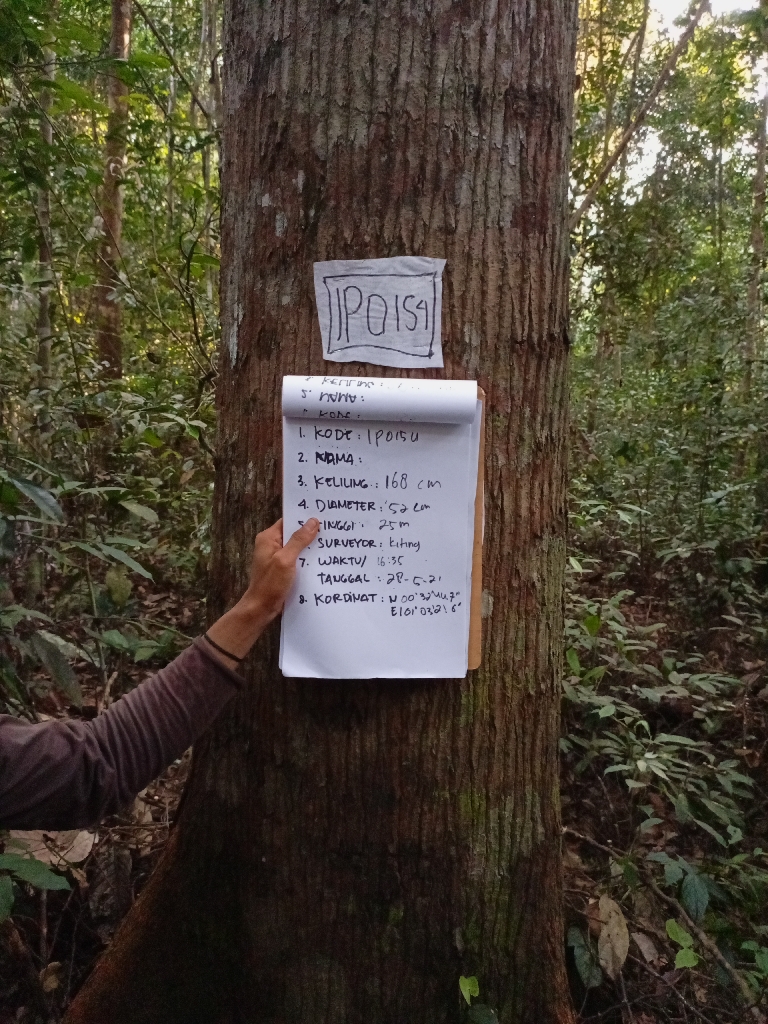 IPO154
1. KODE : IPO154
2. NAMA :
3. KELILING : 168 cm
4. DIAMETER : 52 cm
TINGGI : 25 m
SURVEYOR : Kiting
7. WAKTU/ 16:35
TANGGAL : 28-5-21
8. KORDINAT : N 00°32'44.7"
E 101°03'21.6"